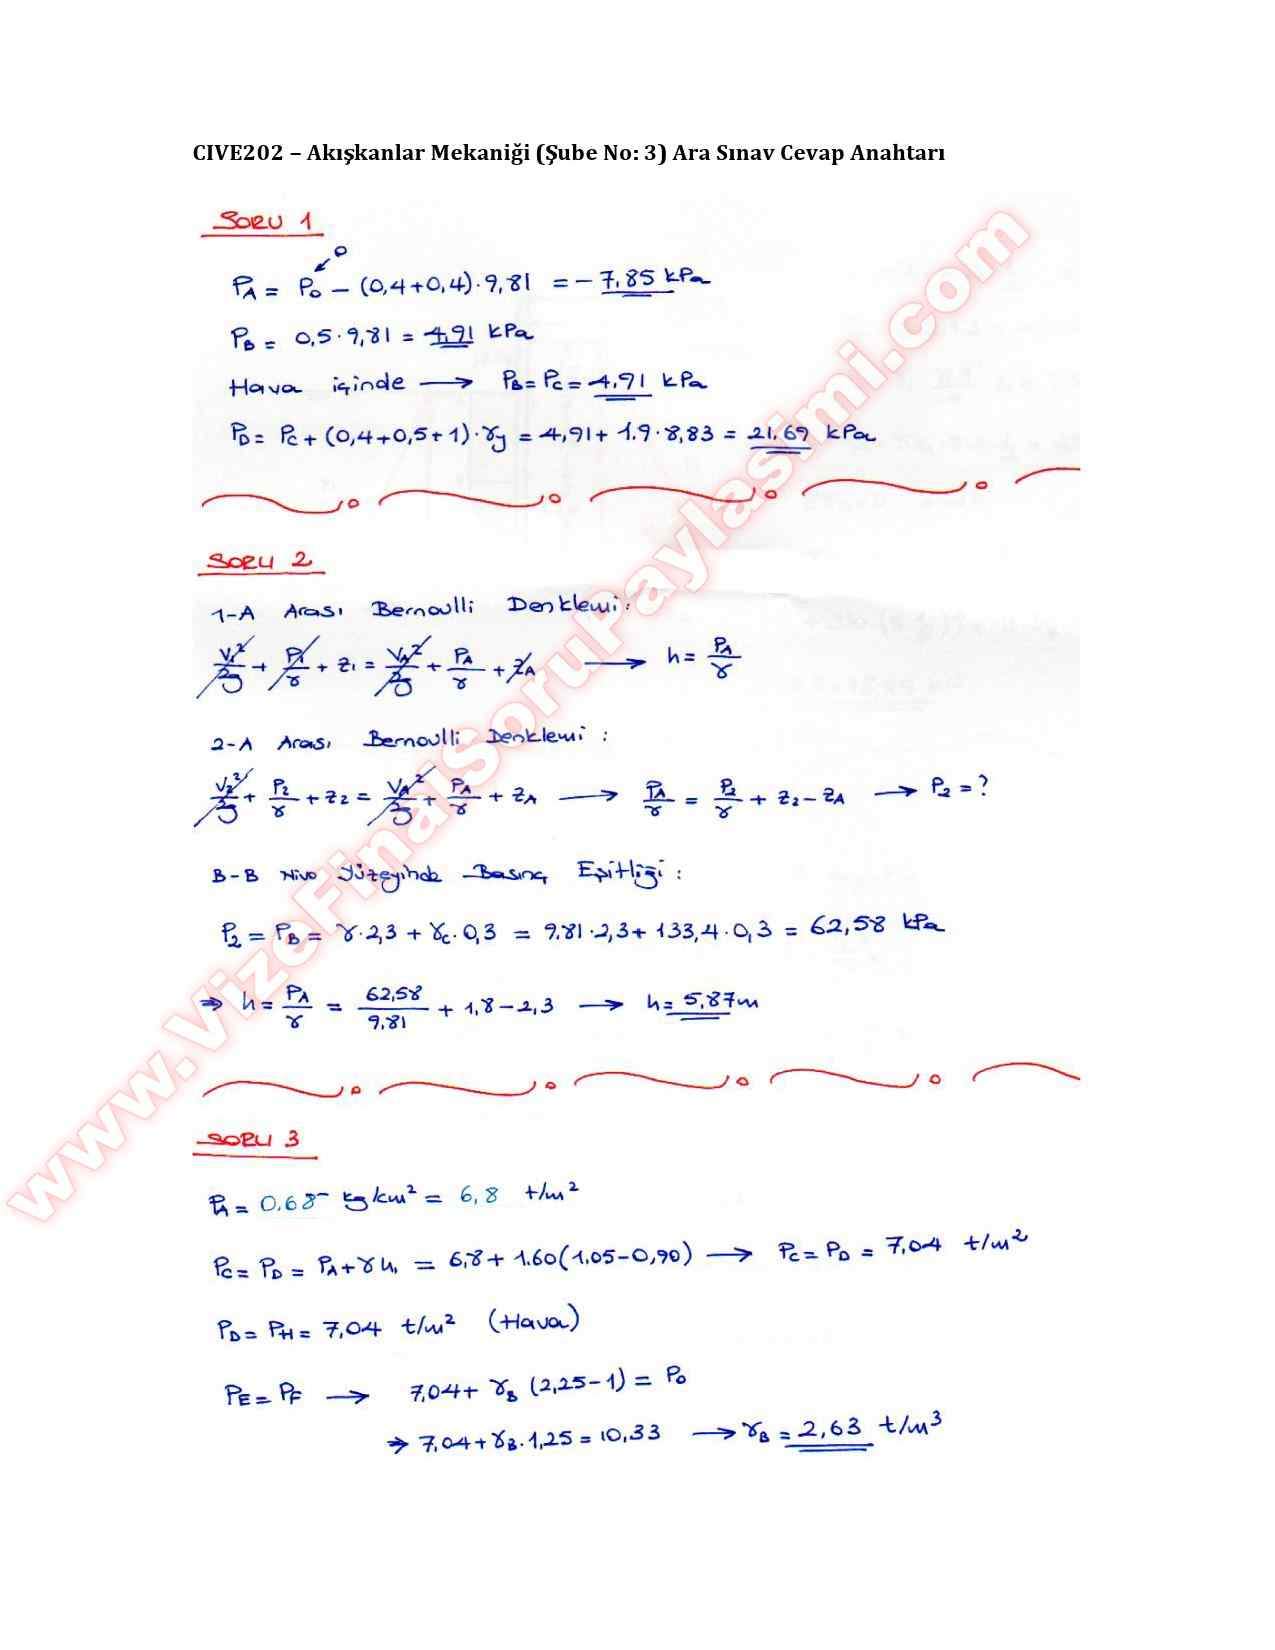 CIVE202 – Akışkanlar Mekaniği (Şube No: 3) Ara Sınav Cevap Anahtarı
SORU 1
0
P_A = P_0 − (0,4+0,4)·9,81 = − 7,85 kPa
P_B = 0,5·9,81 = 4,91 kPa
Hava içinde → P_B = P_C = 4,91 kPa
P_D = P_C + (0,4+0,5+1)·γ_y = 4,91 + 1.9·8,83 = 21,69 kPa
SORU 2
1-A Arası Bernoulli Denklemi:
V₁²/2g + P₁/γ + z₁ = V_A²/2g + P_A/γ + z_A → h = P_A/γ
2-A Arası Bernoulli Denklemi:
V₂²/2g + P₂/γ + z₂ = V_A²/2g + P_A/γ + z_A → P_A/γ = P₂/γ + z₂ − z_A → P₂ = ?
B-B Nivo Yüzeyinde Basınç Eşitliği:
P₂ = P_B = γ·2,3 + γ_c·0,3 = 9.81·2,3 + 133,4·0,3 = 62,58 kPa
⇒ h = P_A/γ = 62,58/9,81 + 1,8 − 2,3 → h = 5,87m
SORU 3
P_A = 0.68 kg/cm² = 6,8 t/m²
P_C = P_D = P_A + γh₁ = 6,8 + 1.60(1.05−0,90) → P_C = P_D = 7,04 t/m²
P_D = P_H = 7,04 t/m² (Hava)
P_E = P_F → 7,04 + γ_B (2,25−1) = P_0
⇒ 7,04 + γ_B·1,25 = 10,33 → γ_B = 2,63 t/m³
www.VizeFinalSoruPaylasimi.com